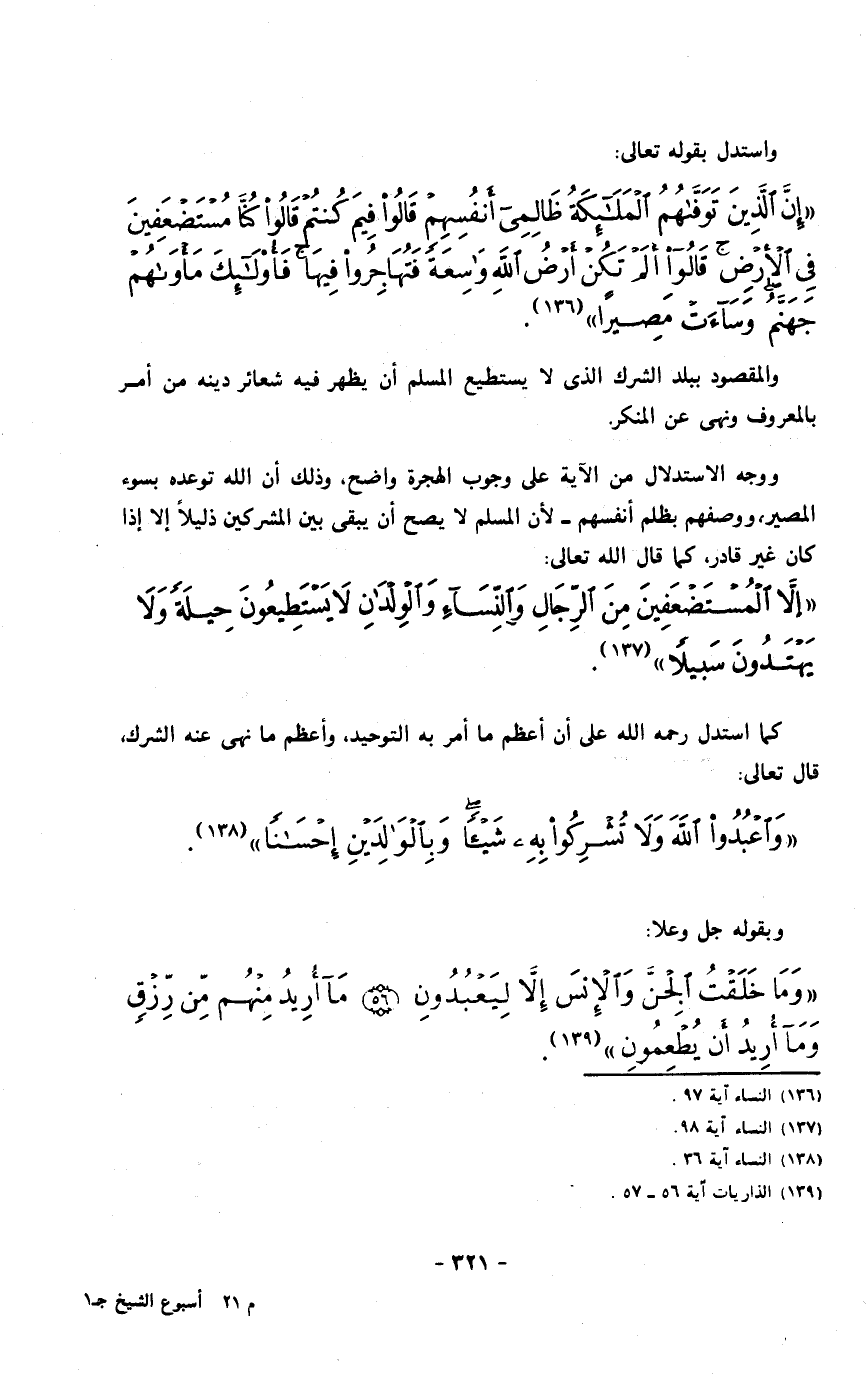 واستدل بقوله تعالى:
«إِنَّ ٱلَّذِينَ تَوَفَّىٰهُمُ ٱلْمَلَٰٓئِكَةُ ظَالِمِىٓ أَنفُسِهِمْ قَالُوا۟ فِيمَ كُنتُمْ قَالُوا۟ كُنَّا مُسْتَضْعَفِينَ
فِى ٱلْأَرْضِ ۚ قَالُوٓا۟ أَلَمْ تَكُنْ أَرْضُ ٱللَّهِ وَٰسِعَةً فَتُهَاجِرُوا۟ فِيهَا ۚ فَأُو۟لَٰٓئِكَ مَأْوَىٰهُمْ
جَهَنَّمُ ۖ وَسَآءَتْ مَصِيرًا» (١٣٦).
والمقصود ببلد الشرك الذى لا يستطيع المسلم أن يظهر فيه شعائر دينه من أمـر
بالمعروف ونهى عن المنكر.
ووجه الاستدلال من الآية على وجوب الهجرة واضح، وذلك أن الله توعده بسوء
المصير، ووصفهم بظلم أنفسهم ـ لأن المسلم لا يصح أن يبقى بين المشركين ذليلاً إلا إذا
كان غير قادر، كما قال الله تعالى:
«إِلَّا ٱلْمُسْتَضْعَفِينَ مِنَ ٱلرِّجَالِ وَٱلنِّسَآءِ وَٱلْوِلْدَٰنِ لَا يَسْتَطِيعُونَ حِيلَةً وَلَا
يَهْتَدُونَ سَبِيلًا» (١٣٧).
كما استدل رحمه الله على أن أعظم ما أمر به التوحيد، وأعظم ما نهى عنه الشرك،
قال تعالى:
«وَٱعْبُدُوا۟ ٱللَّهَ وَلَا تُشْرِكُوا۟ بِهِۦ شَيْـًٔا ۖ وَبِٱلْوَٰلِدَيْنِ إِحْسَٰنًا» (١٣٨).
وبقوله جل وعلا:
«وَمَا خَلَقْتُ ٱلْجِنَّ وَٱلْإِنسَ إِلَّا لِيَعْبُدُونِ ﴿٥٦﴾ مَآ أُرِيدُ مِنْهُم مِّن رِّزْقٍ
وَمَآ أُرِيدُ أَن يُطْعِمُونِ» (١٣٩).
(١٣٦) النساء آية ٩٧ .
(١٣٧) النساء آية ٩٨.
(١٣٨) النساء آية ٣٦ .
(١٣٩) الذاريات آية ٥٦ ـ ٥٧ .
- ٣٢١ -
م ٢١ أسبوع الشيخ جـ١